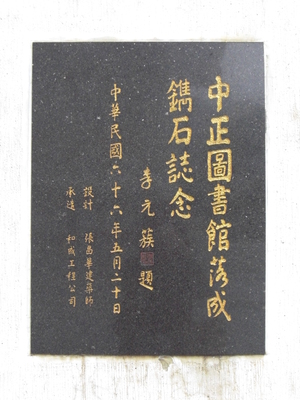 中正圖書館落成
鐫石誌念
李元簇題
中華民國六十六年五月二十日
設計 張昌華建築師
承造 和成工程公司